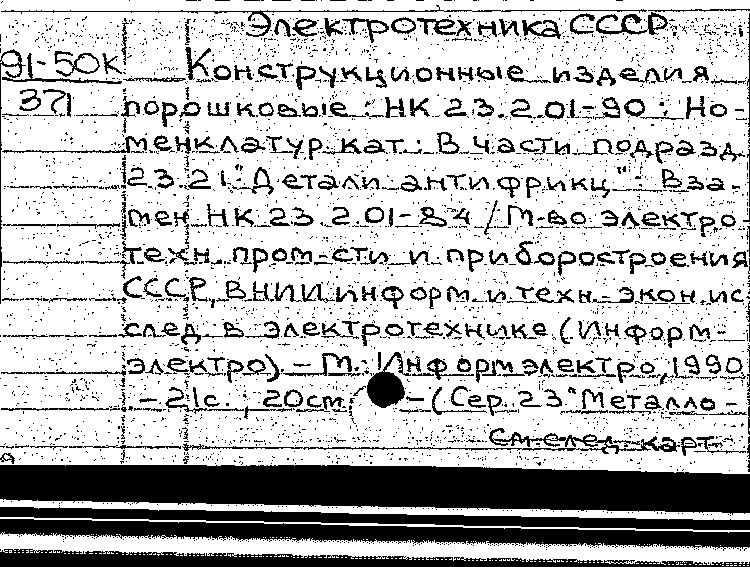 Электротехника СССР.
91-50К Конструкционные изделия
371 порошковые : НК 23.2.01-90 : Но-
менклатур. кат. : В части подразд.
23.21 "Детали антифрикц". - Вза-
мен НК 23.2.01-84 / М-во электро-
техн. пром-сти и приборостроения
СССР, ВНИИ информ. и техн.-экон. ис
след. в электротехнике (Информ-
электро) - М.: Информэлектро, 1990
- 21с. ; 20см. - (Сер. 23 "Металло -
См.след.карт.